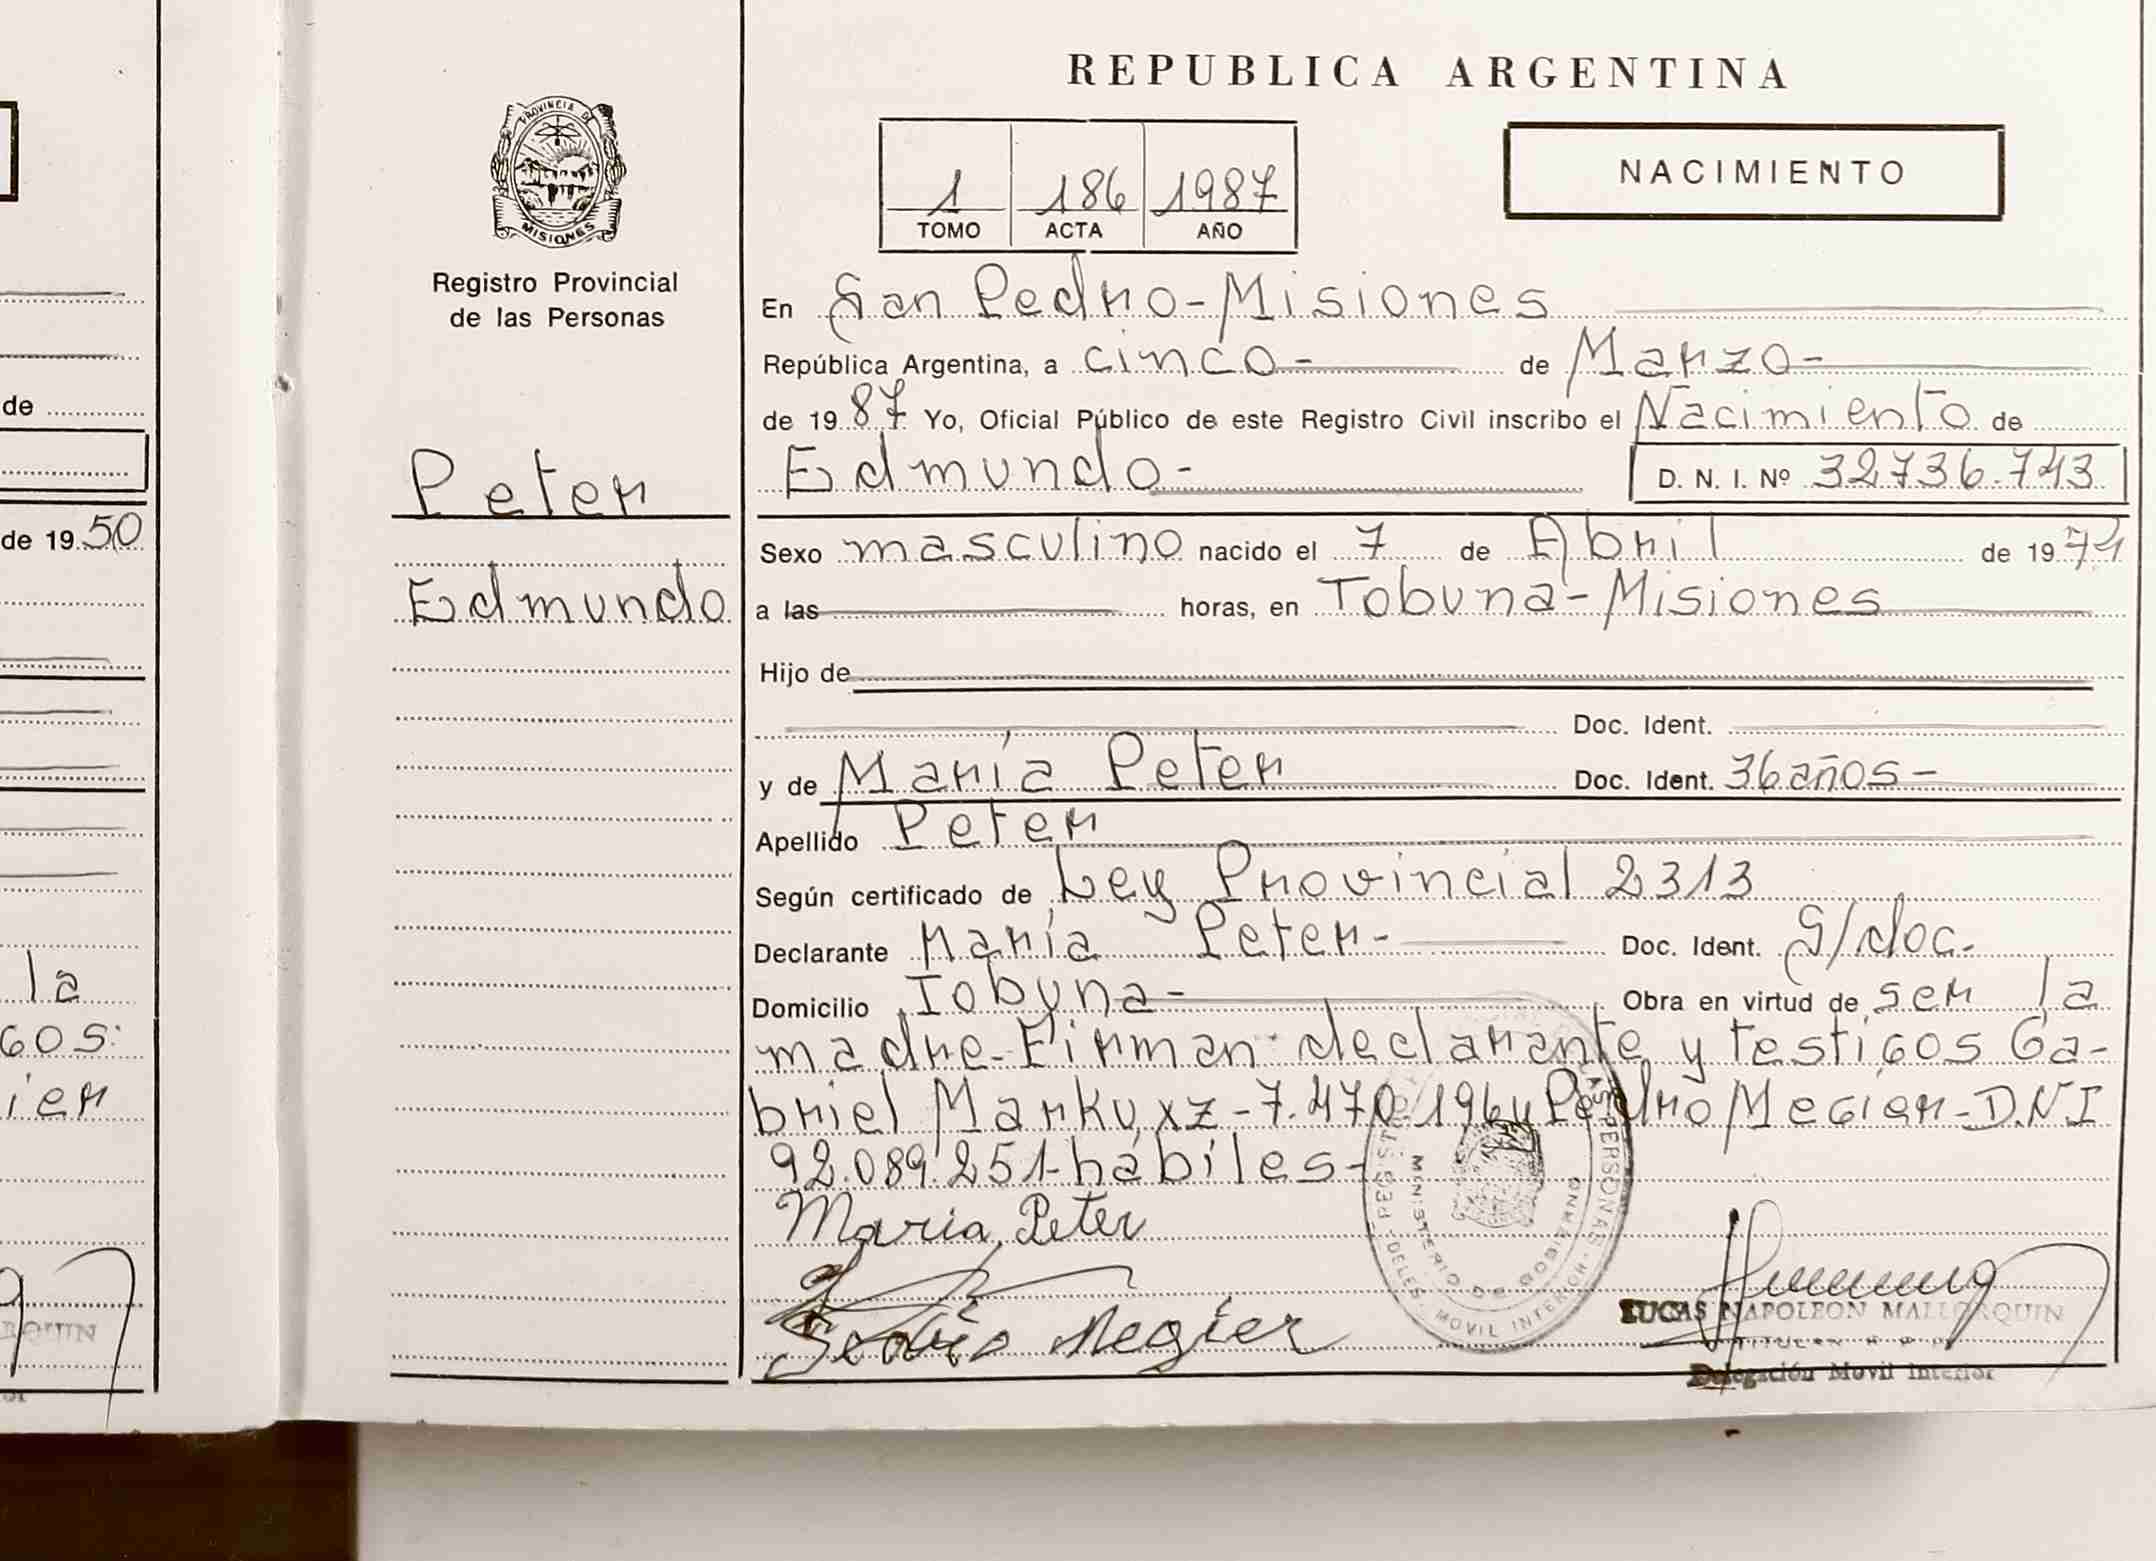 REPUBLICA ARGENTINA
PROVINCIA DE
MISIONES
Registro Provincial
de las Personas
1 186 1987
TOMO ACTA AÑO
NACIMIENTO
En San Pedro-Misiones
República Argentina, a cinco- de Marzo-
de 1987 Yo, Oficial Público de este Registro Civil inscribo el Nacimiento de
Peter
Edmundo- D. N. I. Nº 32736.743
Sexo masculino nacido el 7 de Abril de 1971
Edmundo
a las horas, en Tobuna-Misiones
Hijo de
Doc. Ident.
y de María Peter Doc. Ident. 36 años-
Apellido Peter
Según certificado de Ley Provincial 2313
Declarante María Peter- Doc. Ident. S/doc.
Domicilio Tobuna- Obra en virtud de ser la
madre-Firman declarante y testigos Ga-
briel Markuxz-7.470.196y Pedro Megier-D.N.I
92.089.251-hábiles-
Maria Peter
Megier
LUCAS NAPOLEON MALLORQUIN
TITULAR
Delegación Movil Interior
REGISTRO LAS PERSONAS
MINISTERIO DE GOBIERNO
MOVIL INTERIOR
de
de 1950
la
gos:
ier
RQUIN